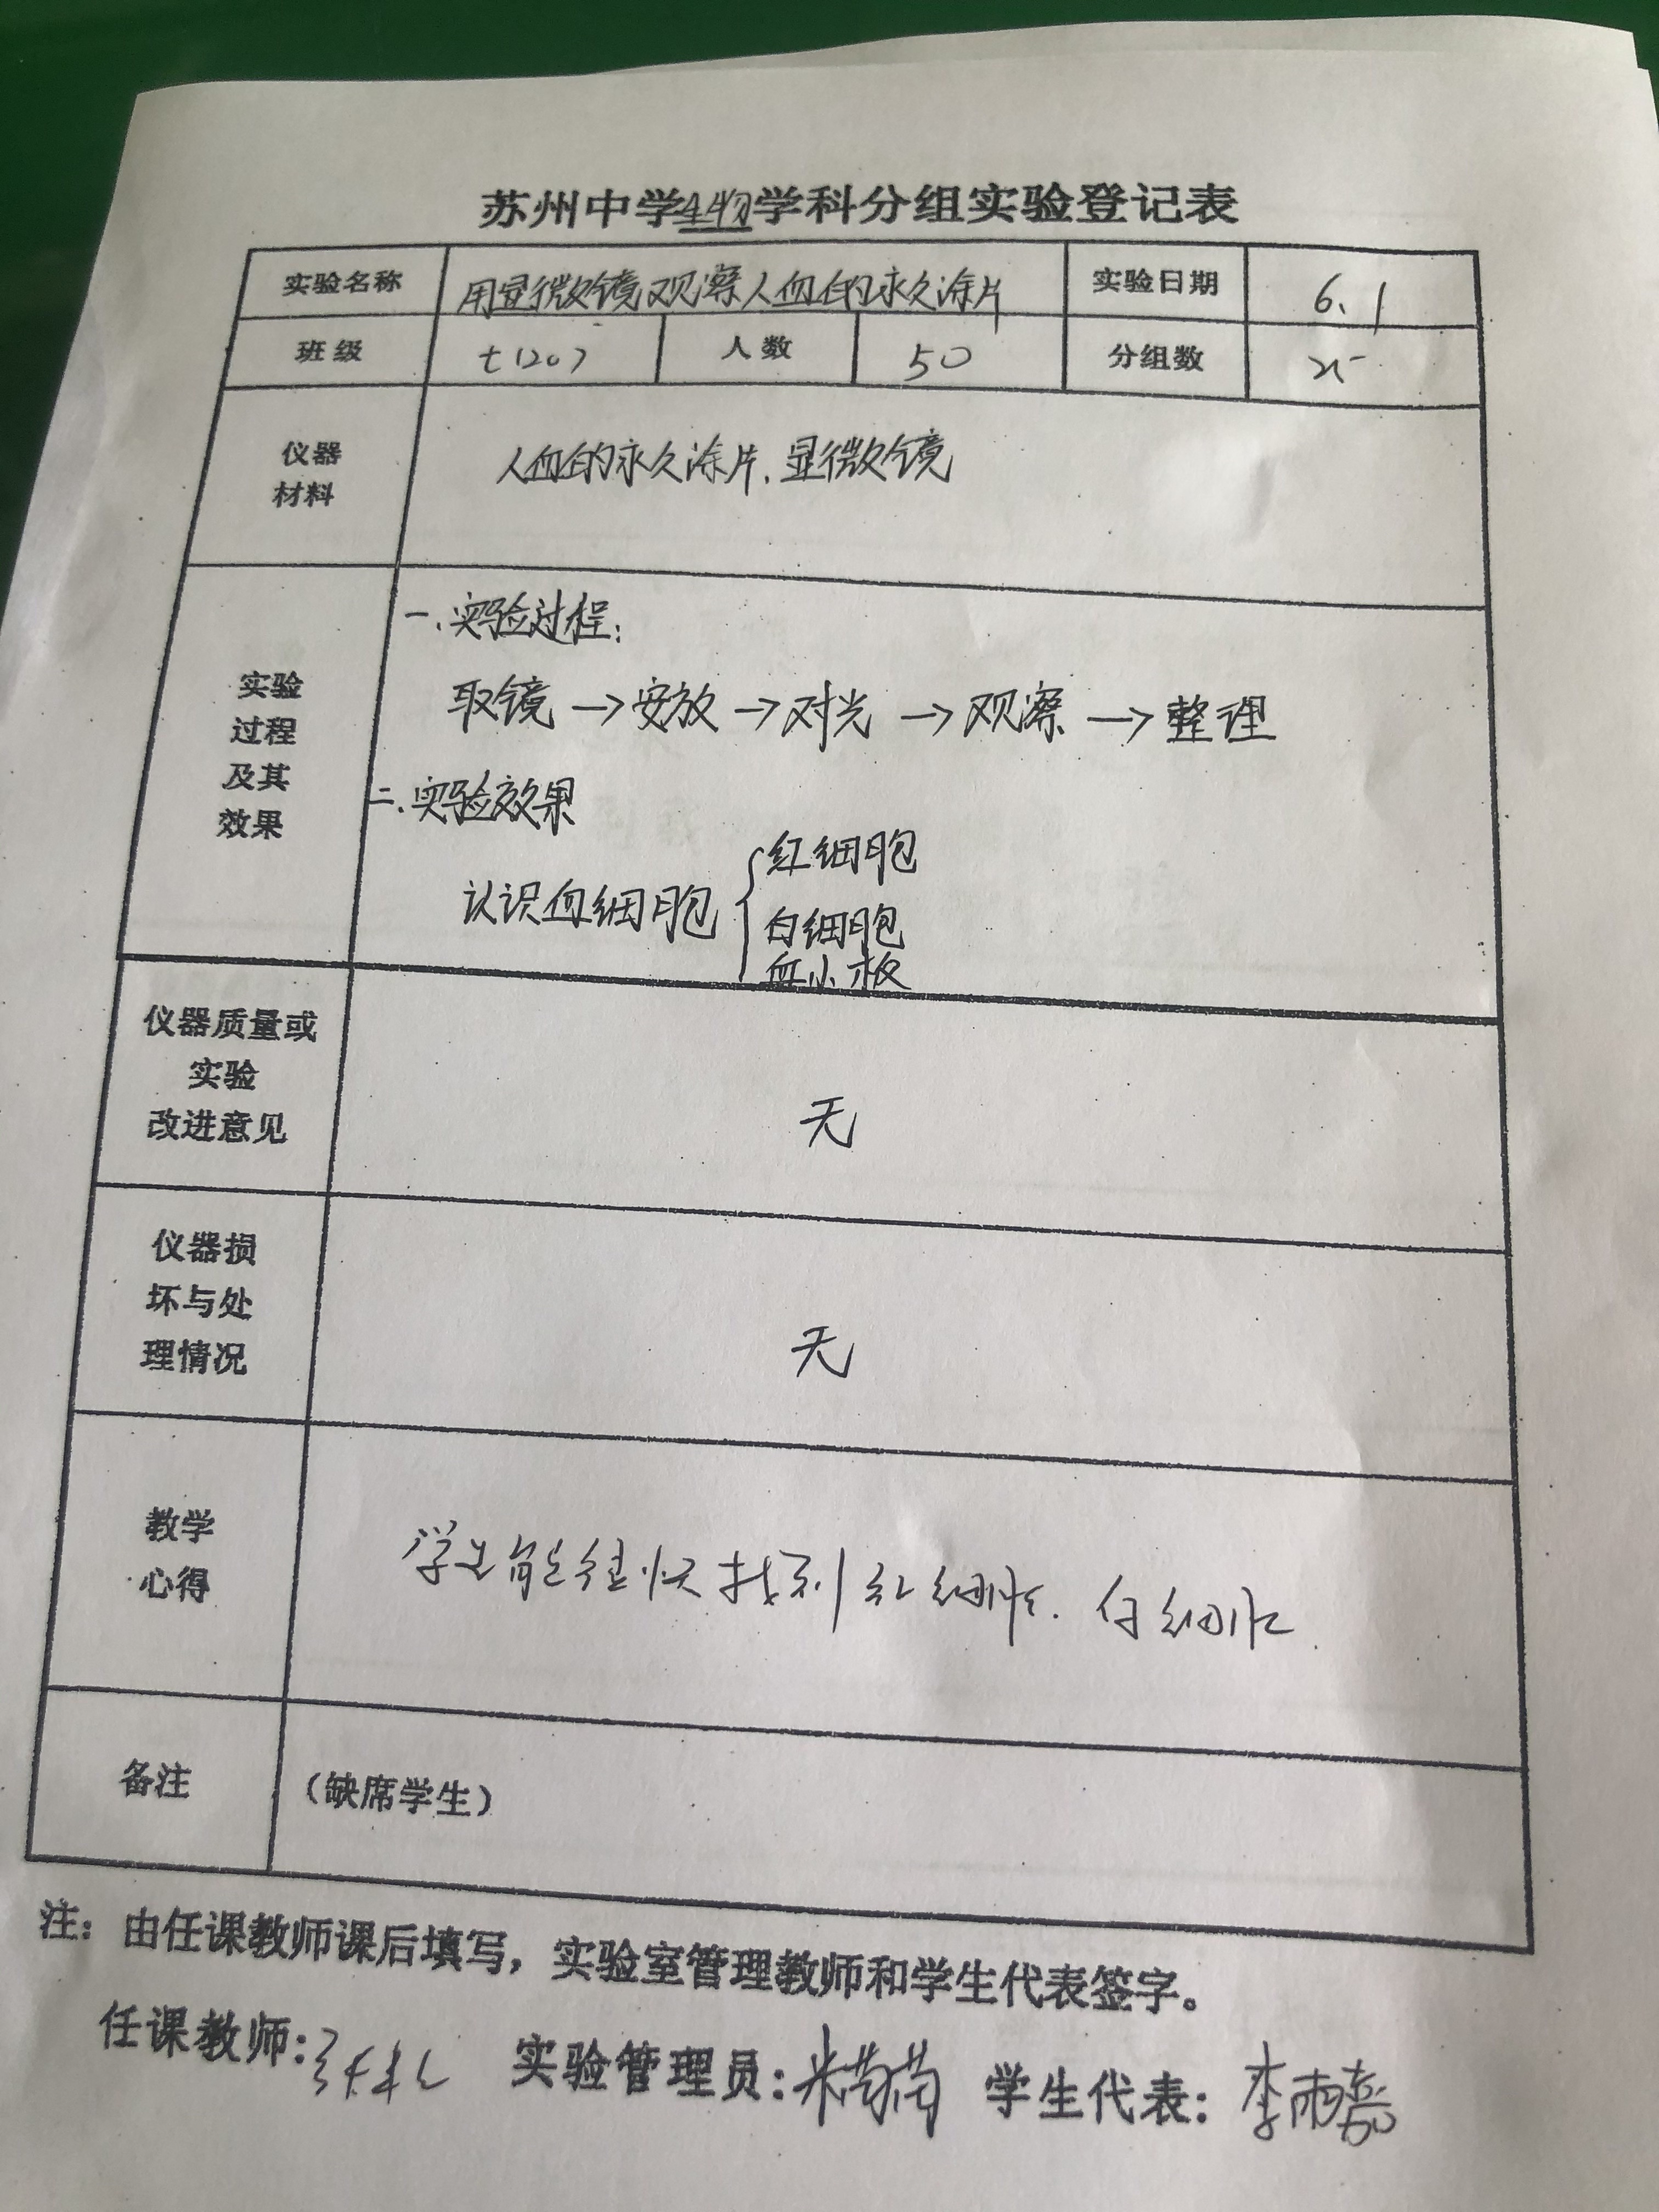 苏州中学生物学科分组实验登记表
实验名称 用显微镜观察人血的永久涂片 实验日期 6.1
班级 七(20) 人数 50 分组数 25
仪器
材料
人血的永久涂片.显微镜
实验
过程
及其
效果
一.实验过程:
取镜→安放→对光→观察→整理
二.实验效果
认识血细胞{红细胞
白细胞
血小板
仪器质量或
实验
改进意见
无
仪器损
坏与处
理情况
无
教学
心得
学生能很快找到红细胞.白细胞.
备注
(缺席学生)
注:由任课教师课后填写,实验室管理教师和学生代表签字。
任课教师: 实验管理员: 学生代表:李雨嘉